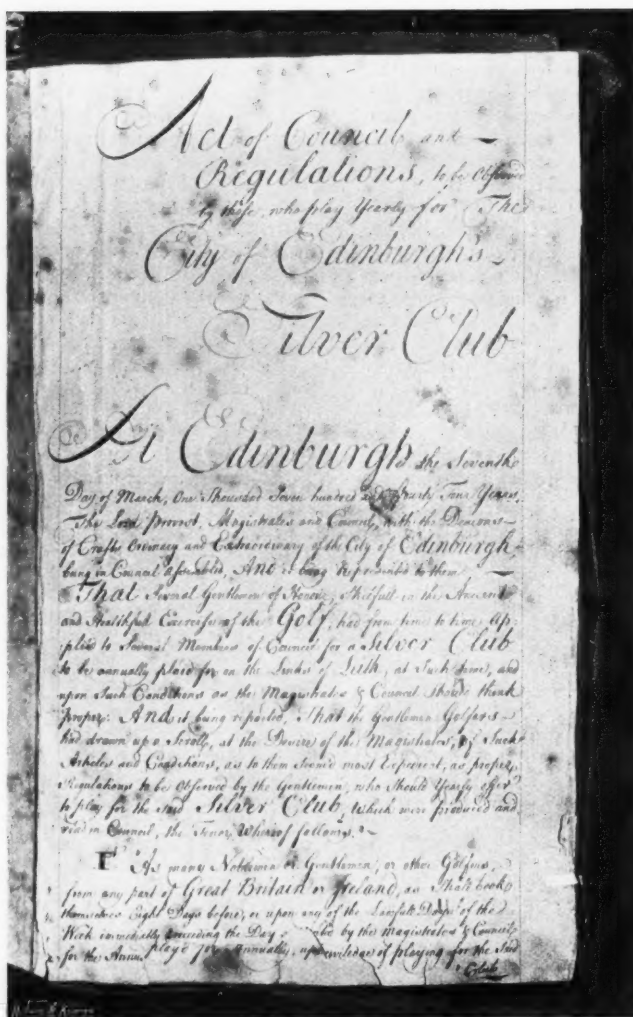 Act of Council and
Regulations, to be Observed
by those, who play Yearly for The
City of Edinburgh's
Silver Club
At Edinburgh the Seventh
Day of March, One Thousand Seven hundred and fourty Four Years,
The Lord Provost, Magistrates and Council, with the Deacons
of Crafts Ordinary and Extraordinary of the City of Edinburgh
being in Council Assembled, And it being Represented to them
That Several Gentlemen of Honour, Skilfull in the Ancient
and Healthfull Exercise of the Golf, had from time to time Ap:
:plied to Several Members of Council for a Silver Club
to be annually plaid for on the Links of Leith, at Such time, and
upon Such Conditions as the Magistrates & Council should think
proper: And it being reported, That the Gentlemen Golfers
had drawn up a Scroll, at the Desire of the Magistrates, of Such
Articles and Conditions, as to them Seem'd most Expedient, as proper
Regulations to be Observed by the Gentlemen, who Should Yearly offer
to play for the said Silver Club, Which were produced and
read in Council, the Tenor Whereof follows.
As many Noblemen or Gentlemen, or other Golfers,
from any part of Great Britain or Ireland, as Shall book
themselves Eight Days before, or upon any of the Lawfull Days of the
Week immediately preceding the Day by the Magistrates & Council
for the play'd for Annually, of playing for the Said
Club